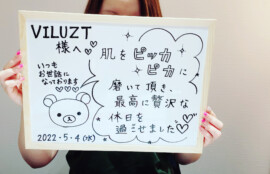 VILUZT
様へ♡
いつも
お世話に
なっております
♡♡♡
肌をピッカ
ピカに
磨いて頂き、
最高に贅沢な
休日を
過ごせました♡
2022-5-4(水)